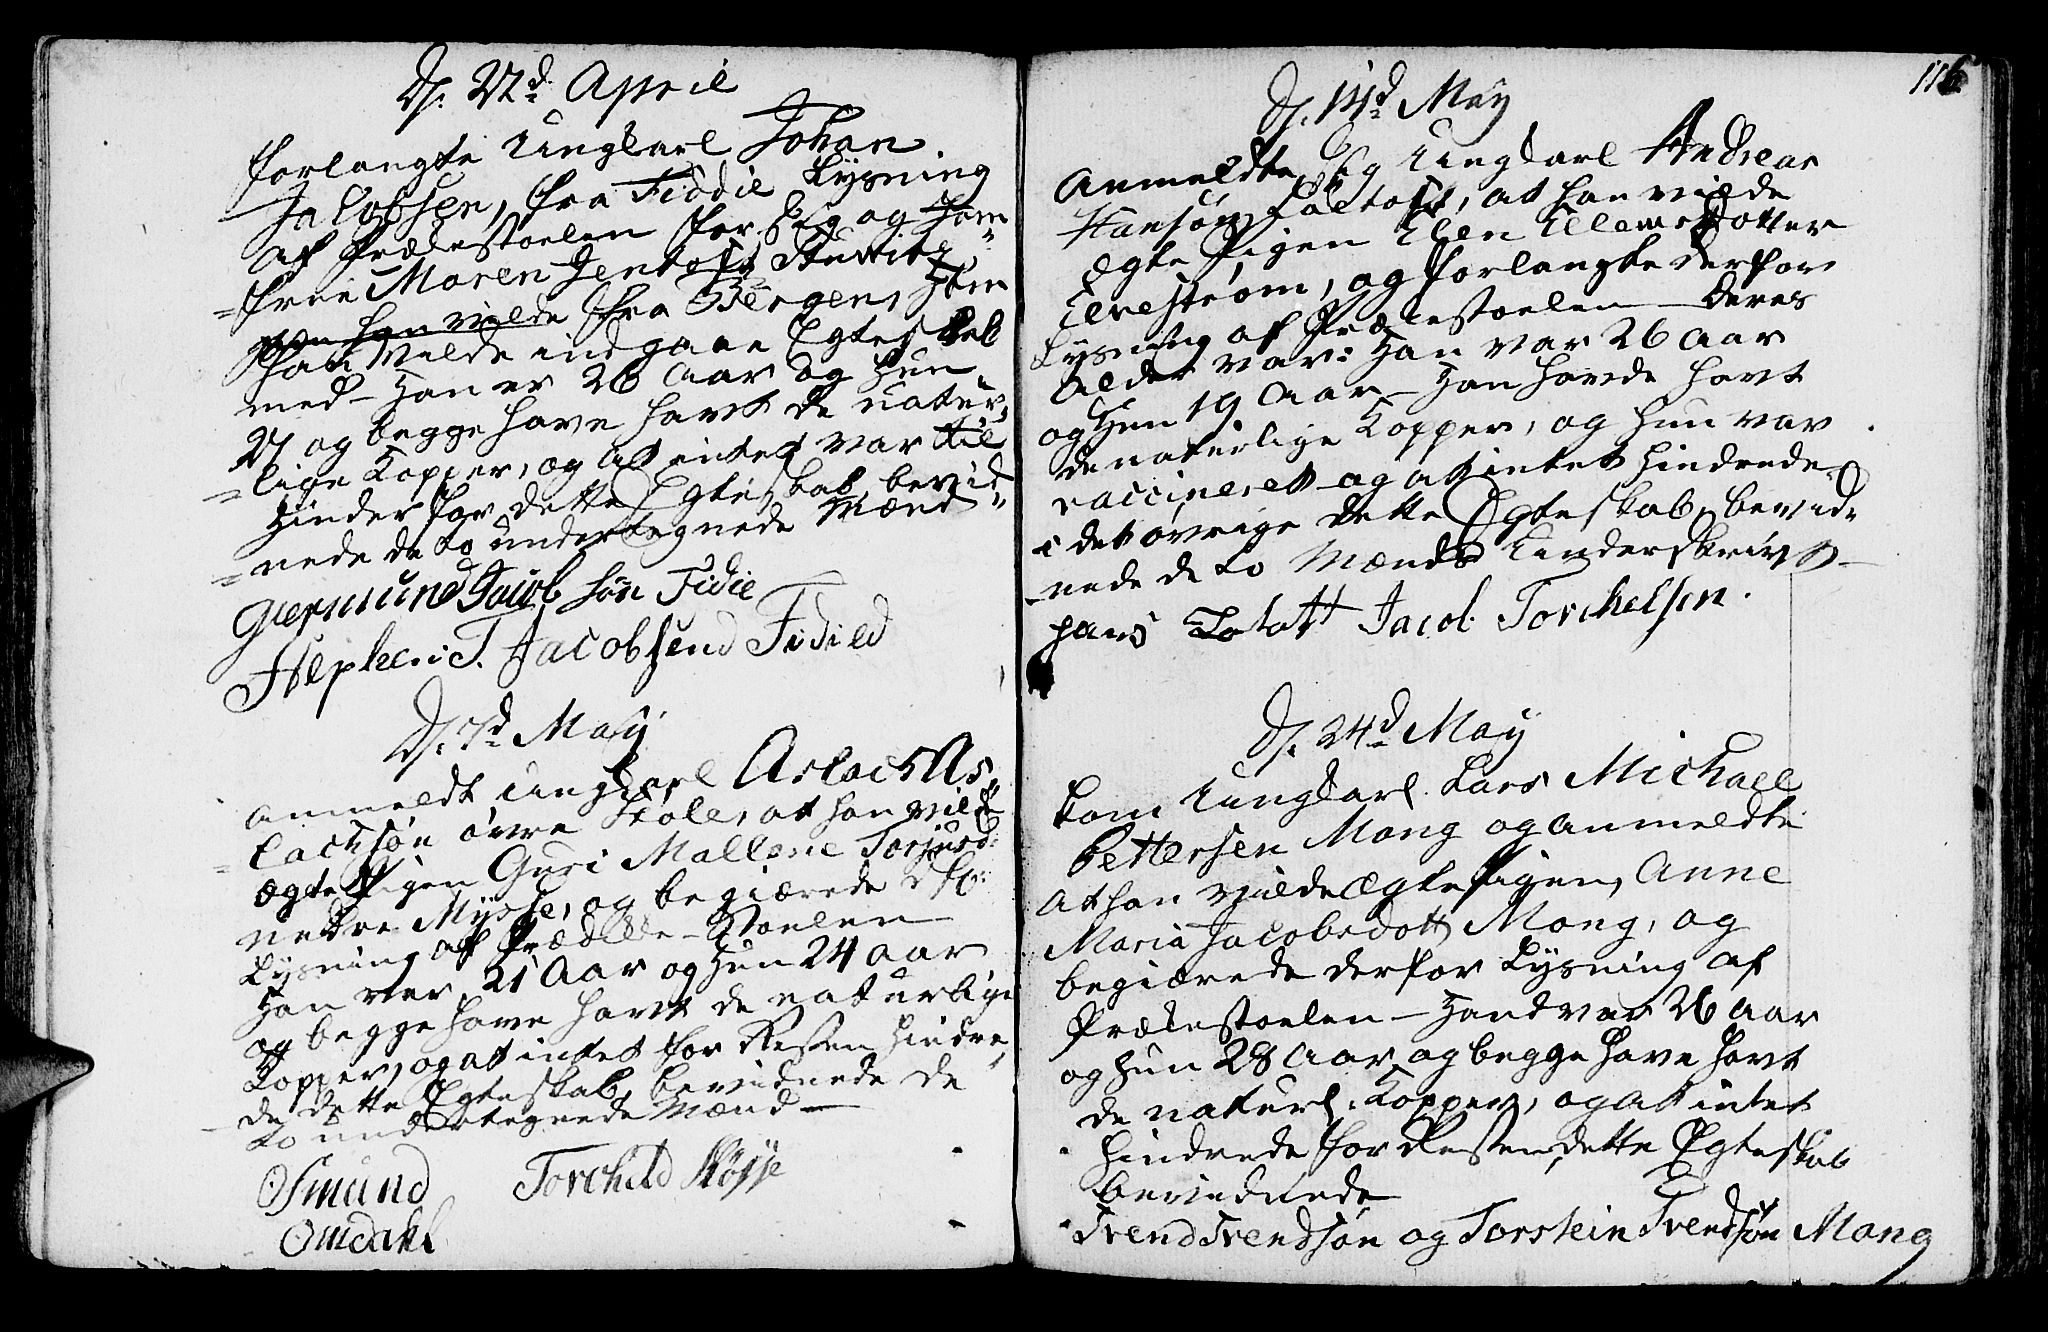 D. 22d April
forlangte Ungkarl Johan
Jacobsen, fra Fiddie Lysning
af Prækestoelen for sig og Jom-
=frue Maren Jentoft fra Bergen, som
som han vilde
han vilde indgaae Egteskab
med - Han er 26 Aar og Hun
27 og begge have havt de natur-
=lige Kopper, og at intet var til
Hinder for dette Egteskab, bevid-
=nede de to undertegnede Mænd
Giermund Jacobsøn Fidie
Stephen T. Jacobsend Fidied
D. 7d May
Anmeldt Ungkarl Aslach As-
=lachsøn øvre Skole, at han vilde
ægte Pigen Guri Mallene Torjusd:
nedre Mysse, og begiærede
Lysning af Prædike-Stoelen
Han var 21 Aar og Hun 24 Aar
og begge have havt de naturlige
Kopper, og at intet for Resten hindre-
de dette Egteskab, bevidnede de
to undertegnede Mænd -
Osmund Torchild Køyse
Omdahl
116
D. 14d May
Anmeldte sig Ungkarl Andreas
Hansøn at han vilde
Egte Pigen Elen Ellewsdotter
Elvestrøm, og forlangte derfor
Lysning af Prækestoelen - Deres
Alder var: Han var 26 Aar
og Hun 19 Aar - Han havde havt
de naturlige Kopper, og hun var
vaccineret - og at intet hindrede
i det øvrige dette Egteskab, bevid-
nede de to Mænds Underskrivt -
hans Jacob Torchelsen.
D. 24d May
kom Ungkarl Lars Michael
Pettersen Mong og anmeldte
at han vilde Egte Pigen, Anne
Maria Jacobsdott Mong, og
begiærede derfor Lysning af
Prækestoelen - Hand var 26 Aar
og hun 28 Aar, og begge have havt
de naturl: Kopper, og at intet
hindrede for Resten dette Egteskab
bevidnede
Trend Trendsøn og Torstein Trendsøn Mong